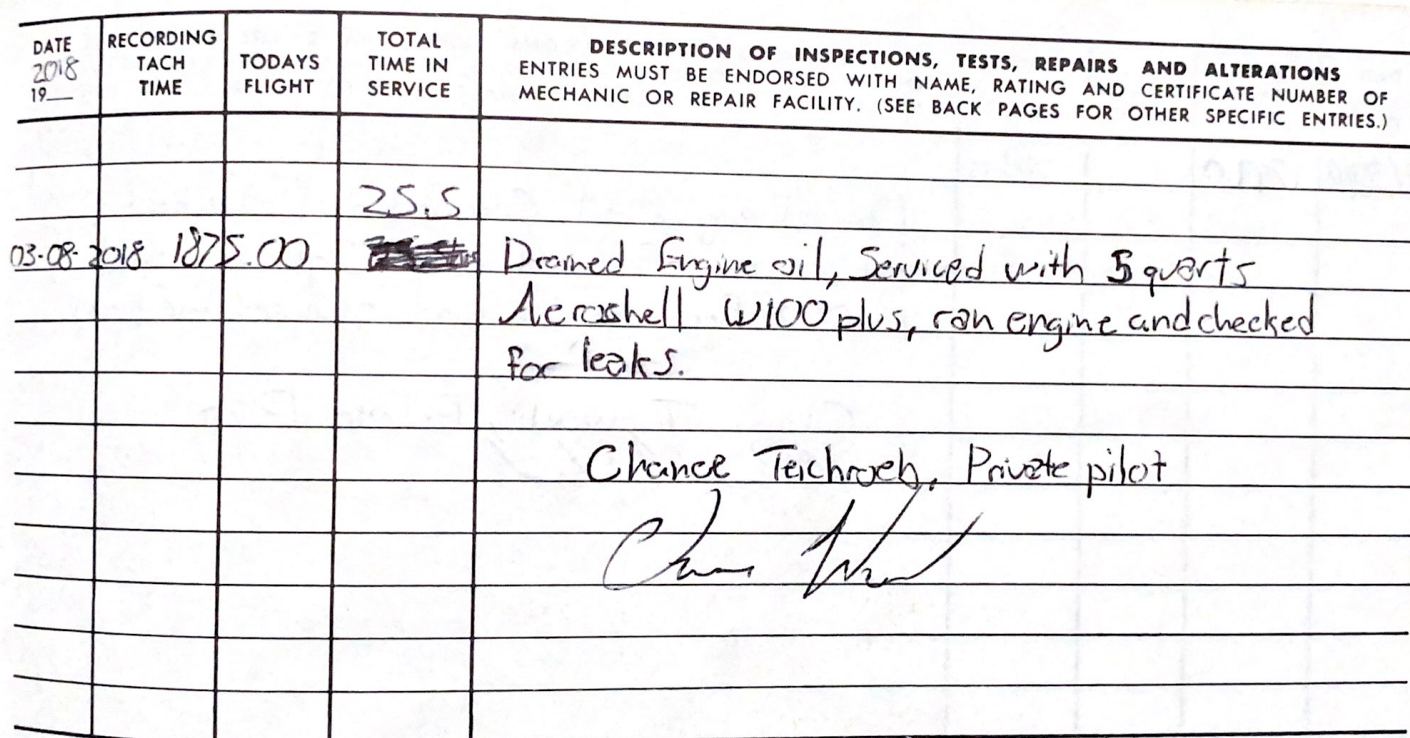 DATE
2018
19__
RECORDING
TACH
TIME
TODAYS
FLIGHT
TOTAL
TIME IN
SERVICE
DESCRIPTION OF INSPECTIONS, TESTS, REPAIRS AND ALTERATIONS
ENTRIES MUST BE ENDORSED WITH NAME, RATING AND CERTIFICATE NUMBER OF
MECHANIC OR REPAIR FACILITY. (SEE BACK PAGES FOR OTHER SPECIFIC ENTRIES.)
25.5
03-08-2018 1875.00 Drained Engine oil, Serviced with 5 quarts
Aeroshell W100 plus, ran engine and checked
for leaks.
Chance Teichroeb, Private pilot